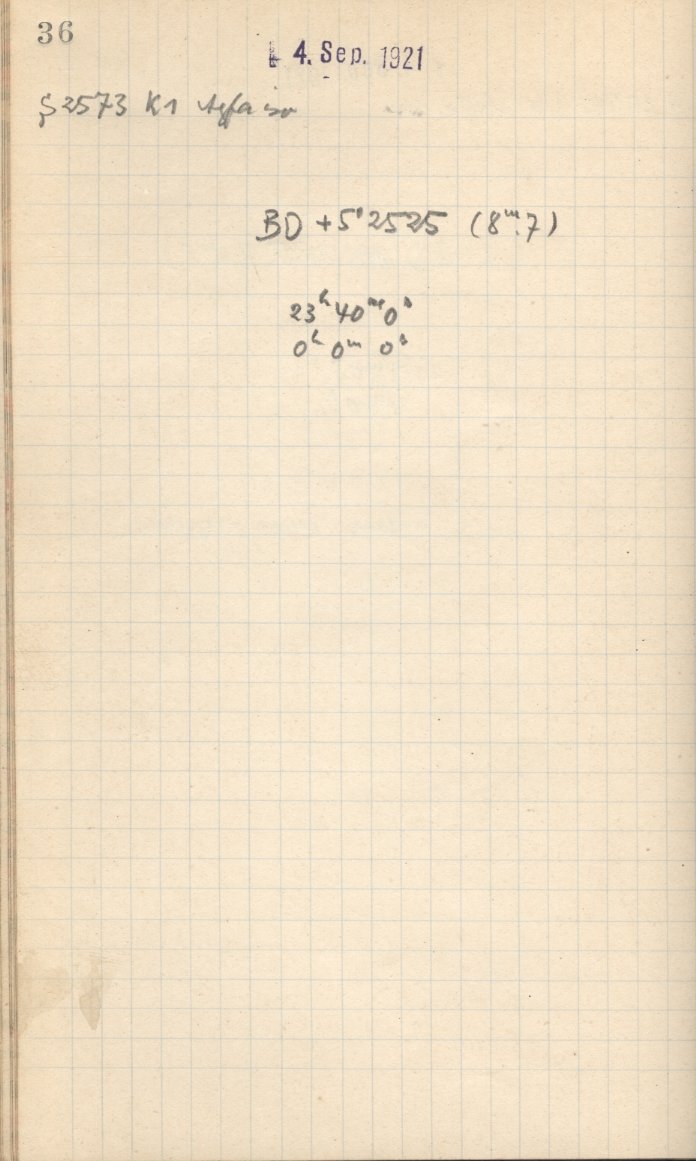 36
4. Sep. 1921
S 2573 K1 Agfa iso
BD +5°2525 (8ᵐ.7)
23ʰ 40ᵐ 0ˢ
0ʰ 0ᵐ 0ˢ